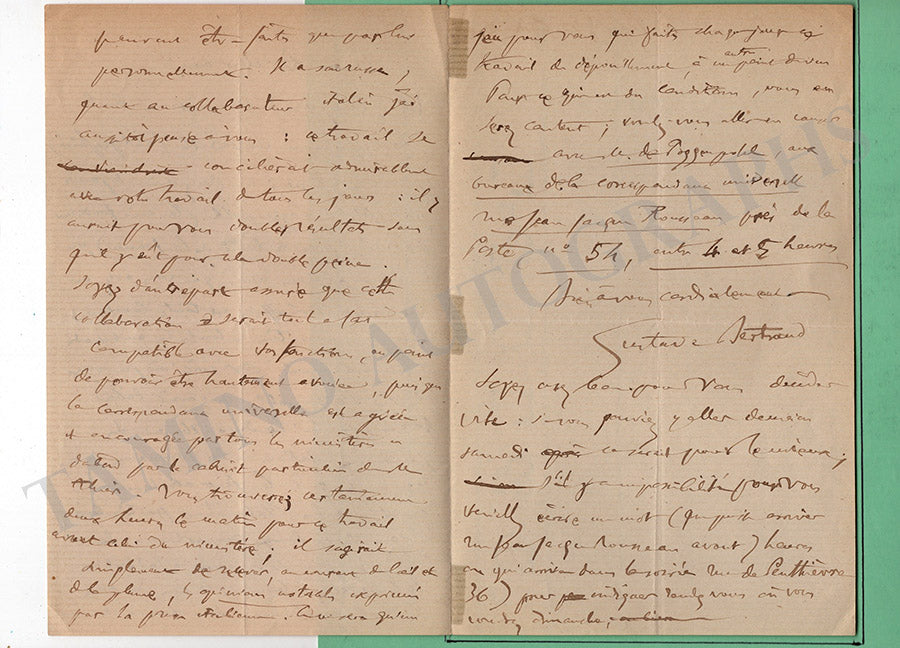 peuvent être faits que par lui
personnellement. Il a sa russe ;
quant au collaborateur italien j'ai
aussitôt pensé à vous : ce travail se
concilierait admirablement
avec votre travail de tous les jours : il y
aurait pour vous double résultat sans
qu'il y eût pour cela double peine.
Soyez d'autre part assuré que cette
collaboration serait tout à fait
compatible avec vos fonctions, au point
de pouvoir être hautement avouée, puisque
la correspondance universelle est agréée
et encouragée par tous les ministères
d'abord par le cabinet particulier de
Vous trouverez certainement
deux heures le matin pour ce travail
avant celui du ministère : il s'agirait
simplement de relever, au courant de l'œil et
de la plume, les opinions notables exprimées
par la presse italienne. Ce ne sera qu'un
jeu pour vous qui faites chaque jour ce
travail de dépouillement, à un autre point de vue
Pour ce qui est des conditions, vous en
serez content ; voulez-vous aller en causer
avec M. de Poggenpohl, aux
bureaux de la correspondance universelle
rue Jean Jacques Rousseau près de la
Poste, n° 54, entre 4 et 5 heures
Bien à vous cordialement
Gustave Bertrand
Soyez assez bon pour vous décider
vite : si vous pouviez y aller demain
samedi ce serait pour le mieux ;
s'il y a impossibilité pour vous
veuillez écrire un mot (qui puisse arriver
rue Jean Jacques Rousseau avant 7 heures
ou qui arrive dans la soirée rue de Penthièvre
36) pour indiquer rendez vous où vous
voudrez dimanche,
TAMINO AUTOGRAPHS